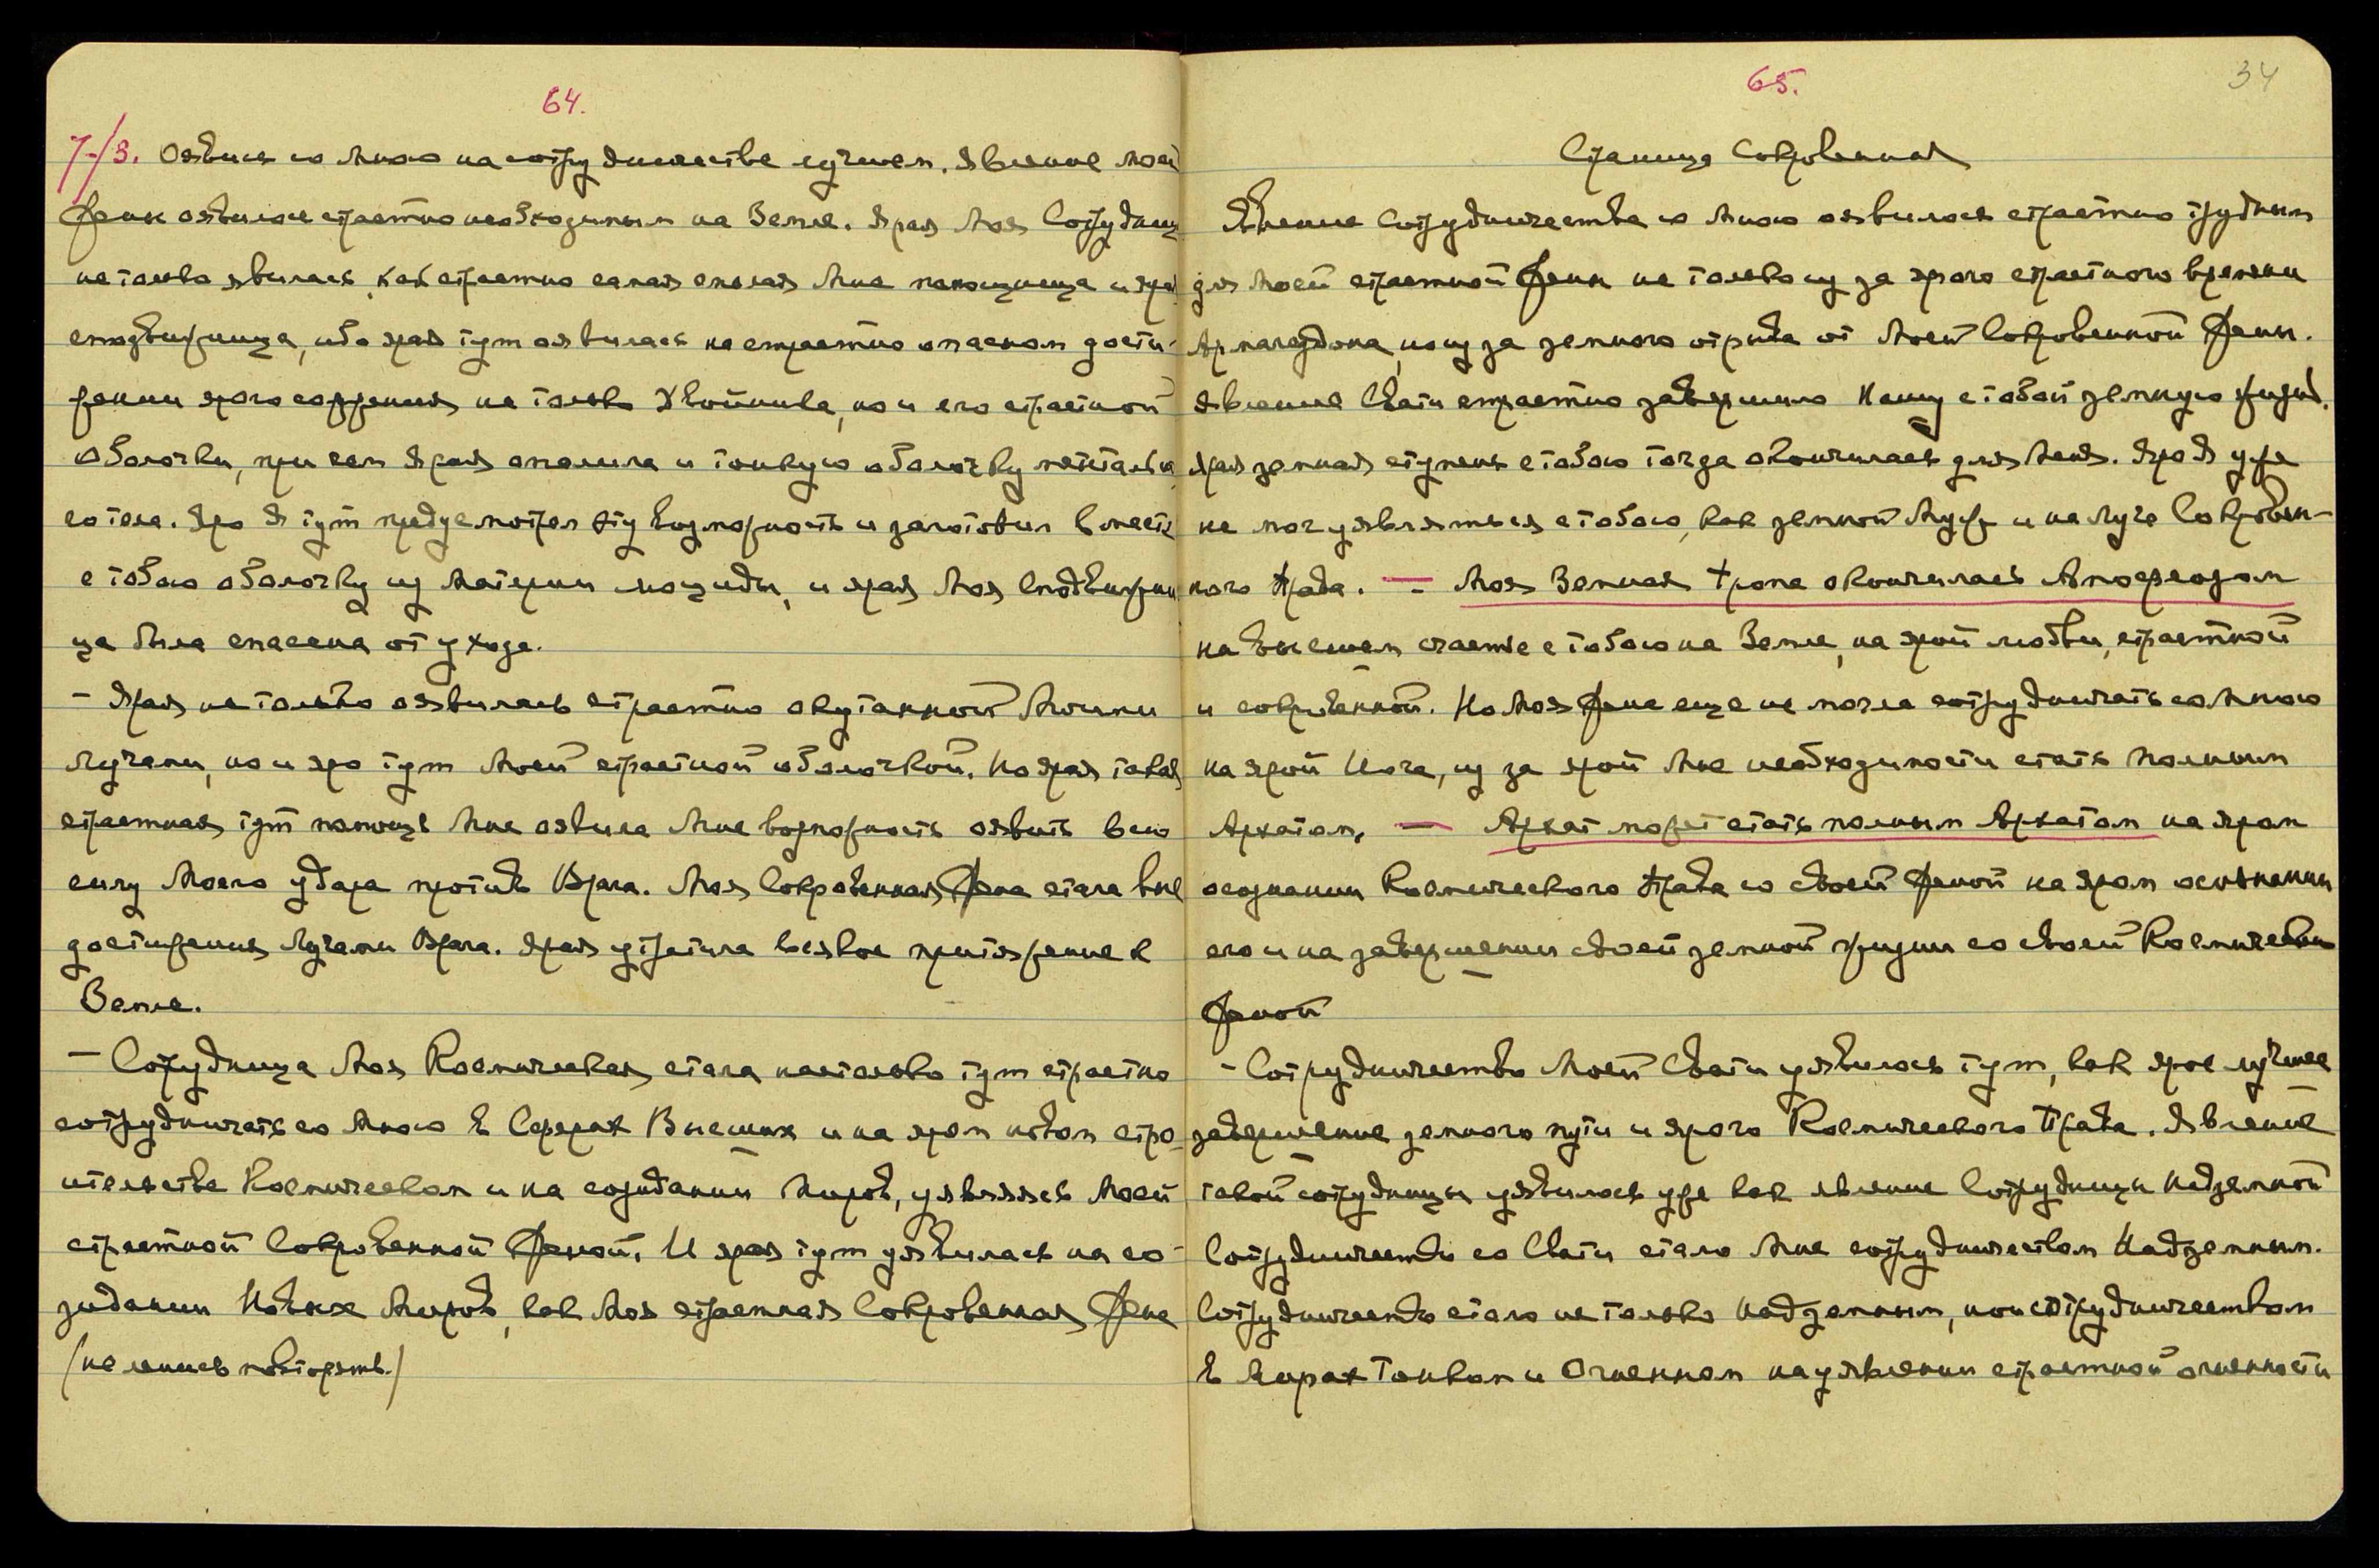 64.
7/3. Оявись со Мною на сотрудничестве лучшем. Явление Моей
Жены оявилось страстно необходимым на Земле. Ярая Моя Сотрудница
не только явилась, как страстно самая смелая Мне помощница и ярая
сподвижница, ибо ярая тут оявилась на страстно опасном дости-
жении ярого сожжения не только Двойника, но и его страстной
оболочки, при чем Ярая опалила и тонкую оболочку ментально
го тела. Яро Я тут предусмотрел эту возможность и заготовил вместе
с тобою оболочку из Материи Люциды, и ярая Моя Сподвижни
ца была спасена от ухода.
– Ярая не только оявилась страстно окутанной Моими
Лучами, но и яро тут Моей страстной оболочкой. Но ярая такая
страстная тут помощь Мне оявила Мне возможность оявить всю
силу Моего удара против Врага. Моя Сокровенная Жена стала вне
достижения Лучами Врага. Ярая утратила всякое притяжение к
Земле.
– Сотрудница Моя Космическая стала настолько тут страстно
сотрудничать со Мною в Сферах Высших и на ярем новом стро
ительстве Космическом и на созидании Миров, уявляясь Моей
страстной Сокровенной Женой. И ярая тут уявилась на со-
зидании Новых Миров, как Моя страстная Сокровенная Жена
(не ленись повторять.)
65.
34
Страница Сокровенная
Явление Сотрудничества со Мною оявилось страстно трудным
для Моей страстной Жены не только из за ярого страстного времени
Армагеддона, но из за земного отрыва от Моей Сокровенной Жены.
Явление Свати страстно завершило Нашу с тобой земную жизнь.
Ярая земная ступень с тобою тогда окончилась для Меня. Яро Я уже
не мог уявляться с тобою, как земной Муж и на Луче Сокровен-
ного Права. – Моя Земная тропа окончилась Апофеозом
на высшем счастье с тобою на Земле, на ярой любви, страстной
и сокровенной. Но Моя Жена еще не могла сотрудничать со Мною
на ярой Йоге, из за ярой Мне необходимости стать полным
Архатом, – Архат может стать полным Архатом на яром
осознании Космического Права со своей Женой на яром осознании
его и на завершении своей земной жизни со своей Космической
Женой
– Сотрудничество Моей Свати уявилось тут, как ярое лучшее
завершение земного пути и ярого Космического Права. Явление
такой сотрудницы уявилось уже как явление Сотрудницы Надземной
Сотрудничество со Свати стало Мне сотрудничеством Надземным.
Сотрудничество стало не только надземным, но и сотрудничеством
в Мирах Тонком и Огненном на уявлении страстной огненности